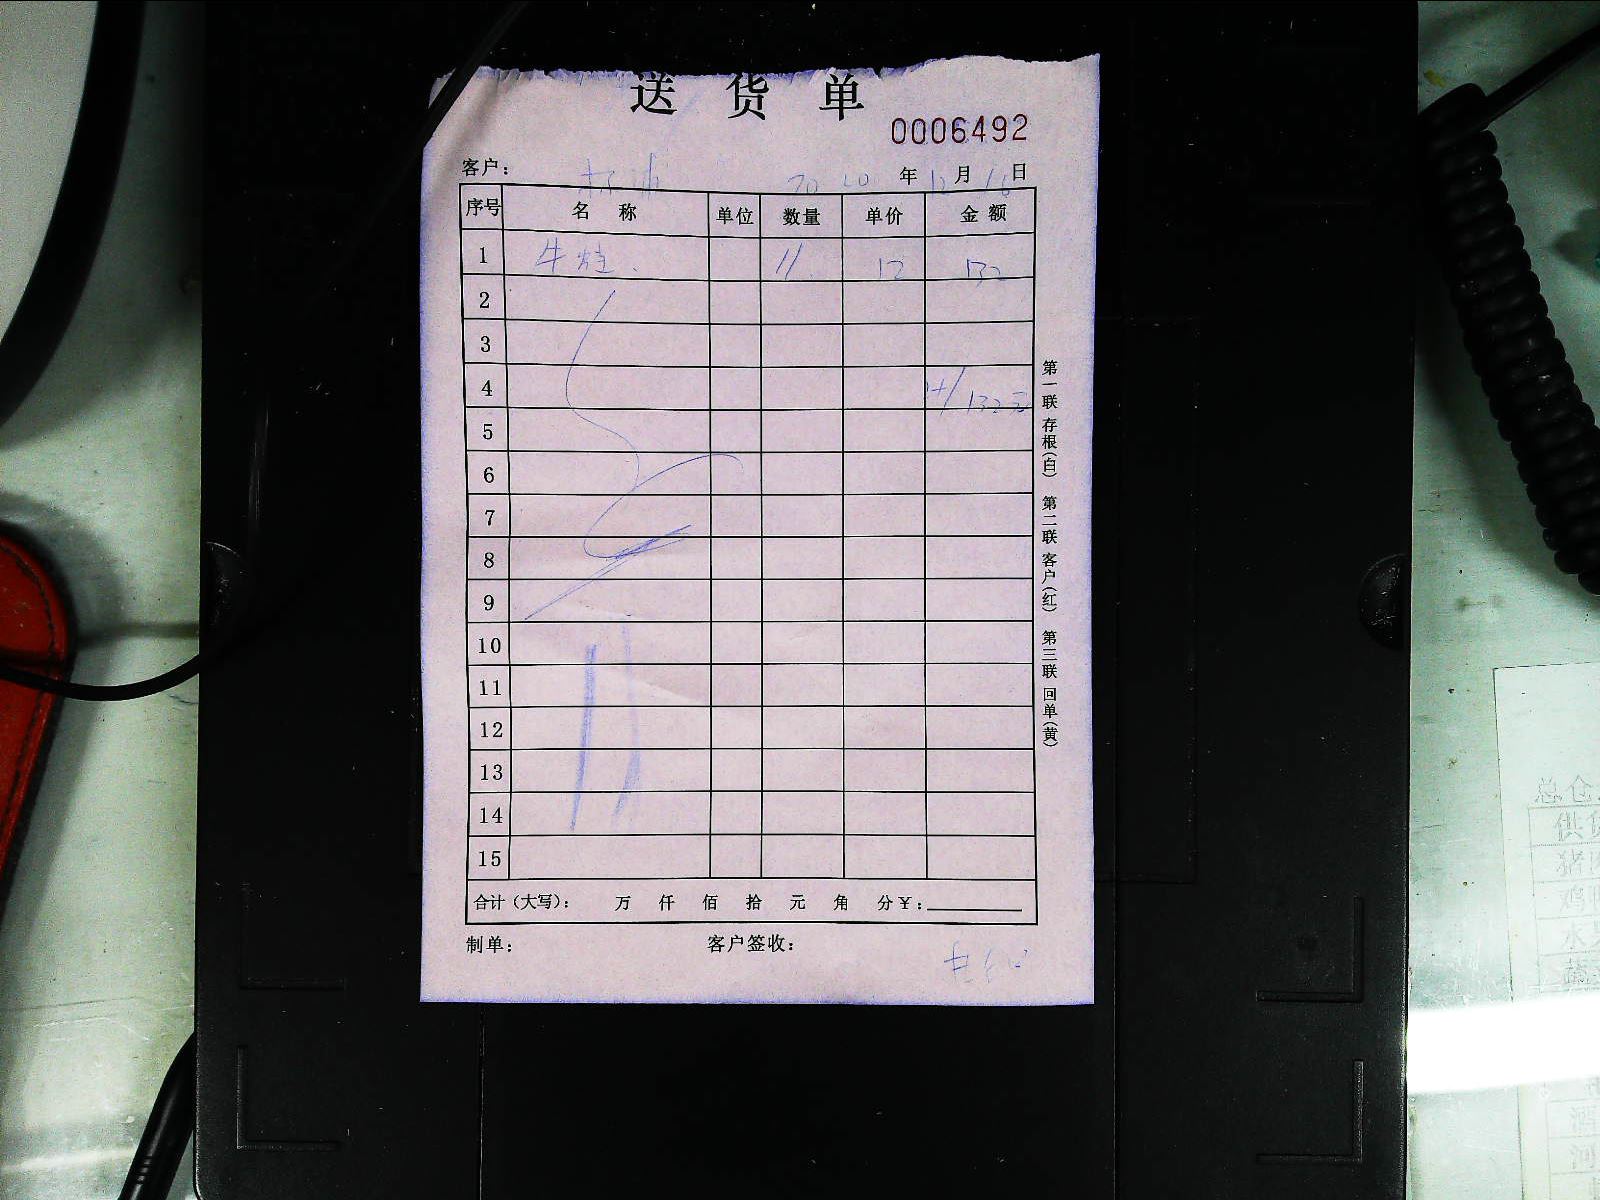 送货单
0006492
客户： 2020年12月16日
序号 名称 单位 数量 单价 金额
1 牛 11 12 132
2
3
4 132元
5
6
7
8
9
10
11
12
13
14
15
合计（大写）： 万 仟 佰 拾 元 角 分￥：
制单： 客户签收：
第一联存根(白) 第二联客户(红) 第三联回单(黄)